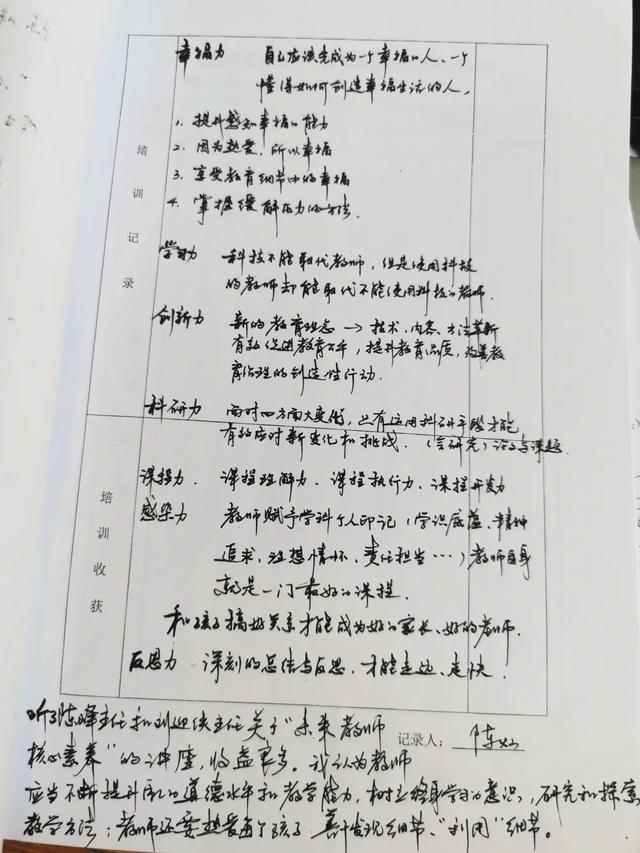 幸福力 自己应该先成为一个幸福的人、一个
懂得如何创造幸福生活的人。
1. 提升感知幸福的能力
2. 因为热爱，所以幸福
3. 享受教育细节中的幸福
4. 掌握缓解压力的方法.
培训记录
学习力 科技不能取代教师，但是使用科技
的教师却能取代不能使用科技的教师.
创新力 新的教育理念→技术、内容、方法革新
有效促进教育公平，提升教育品质，改善教
育治理的创造性行动.
科研力 面对四方面大变化，只有运用科研手段才能
有效应对新变化和挑战.（会研究）论文与课题.
课程力. 课程理解力、课程执行力、课程开发力
感染力 教师赋予学科个人印记（学识底蕴、精神
追求、理想情怀、责任担当…）教师自身
就是一门最好的课程.
培训收获
和孩子搞好关系才能成为好的家长、好的老师.
反思力 深刻的总结与反思，才能走远、走快.
听了陈峰主任和刘迎侠主任关于“未来教师
记录人：陈
核心素养”的讲座，收益良多。我认为教师
应当不断提升自己的道德水平和教学能力，树立终身学习的意识，研究和探索
教学方法；教师还要热爱每个孩子 善于发现细节、“利用”细节。